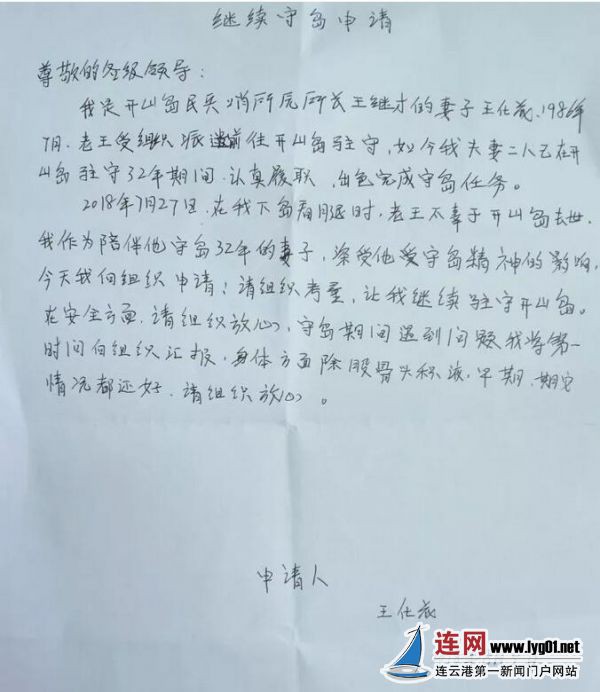 继续守岛申请
尊敬的各级领导：
我是开山岛民兵哨所原所长王继才的妻子王仕花，1986年
7月，老王受组织派遣前往开山岛驻守，如今我夫妻二人已在开
山岛驻守32年期间，认真履职，出色完成守岛任务。
2018年7月27日，在我下岛看腿时，老王不幸于开山岛去世，
我作为陪伴他守岛32年的妻子，深受他爱守岛精神的影响，
今天我向组织申请：请组织考虑，让我继续驻守开山岛。
在安全方面，请组织放心，守岛期间遇到问题我学第一
时间向组织汇报，身体方面除股骨头积液，早期，其它
情况都还好，请组织放心。
申请人
王仕花
连网 www.lyg01.net
连云港第一新闻门户网站